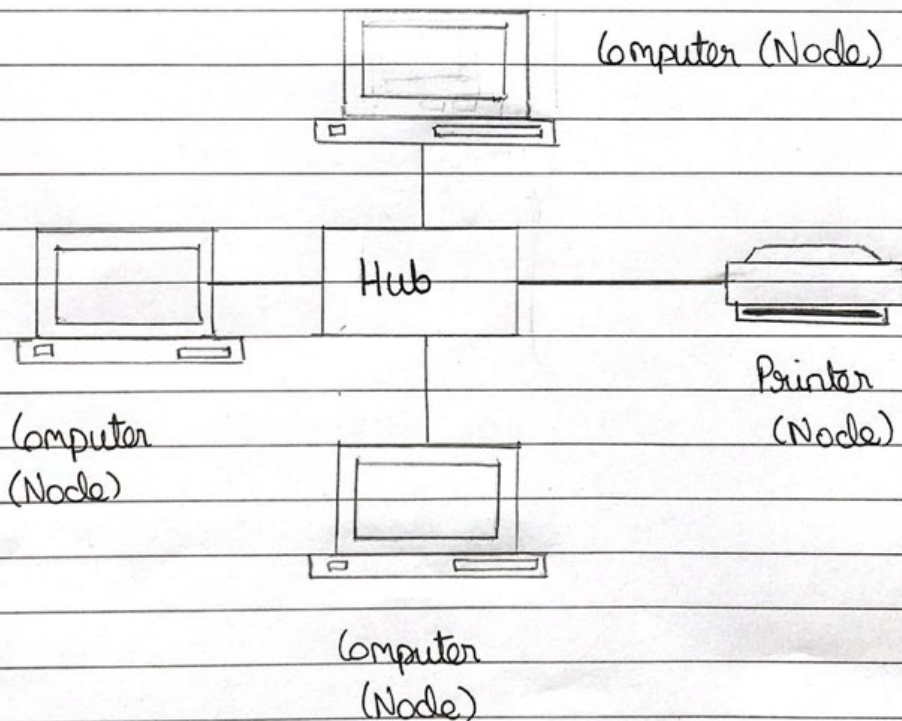 Computer (Node)
Hub
Printer
(Node)
Computer
(Node)
Computer
(Node)